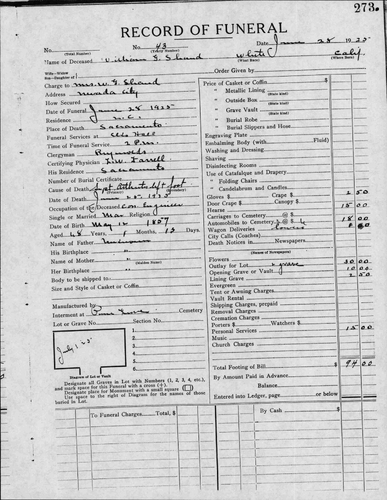 273.
RECORD OF FUNERAL
No. No. 43 Date, June 28 1925
(Total Number) (Yearly Number)
Name of Deceased William G. Shand White Calif
(Where Born)
Wife—Widow
Son—Daughter of Order Given by
Charge to Mrs. W. G. Shand
Address Nevada City
How Secured
Date of Funeral June 28 1925
Place of Death Sacramento
Funeral Services at Elks Hall
Time of Funeral Service 2 P.M.
Clergyman Reynolds
Certifying Physician Farrell
His Residence Sacramento
Number of Burial Certificate
Cause of Death left foot
Date of Death June 1925
Occupation of the Deceased Engineer
Single or Married Mar Religion
Date of Birth May 1857
Aged 68 Years, 1 Months, 13 Days
Name of Father Unknown
His Birthplace "
Name of Mother "
(Maiden Name)
Her Birthplace "
Body to be Shipped to
Size and Style of Casket or Coffin
Manufactured by
Interment at Pine Grove Cemetery
Lot or Grave No. Section No.
July 1 25
Diagram of Lot or Vault
Designate all Graves in Lot with Numbers (1, 2, 3, 4, etc.), and mark space for this Funeral with a cross (+).
Designate place for Monument with a small square
Use space to the right of Diagram for the names of those buried in Lot.
Price of Casket or Coffin
" Metallic Lining
(State Kind)
" Outside Box
(State Kind)
" Grave Vault
(State Kind)
" Burial Robe
(State Kind)
" Burial Slippers and Hose
Engraving Plate
Embalming Body (with Fluid)
Washing and Dressing
Shaving
Disinfecting Rooms
Use of Catafalque and Drapery
" Folding Chairs
" Candelabrum and Candles
Gloves $ Crape $ 2 50
Door Crape $ Canopy $
Hearse 15 00
Carriages to Cemetery @ $
Automobiles to Cemetery 3 @ $ 18 00
Wagon Deliveries flowers
City Calls (Coaches)
Death Notices in Newspapers
(Names of Newspapers)
Flowers 30 00
Outlay for Lot
Opening Grave or Vault 10 00
Lining Grave 2 50
Evergreen
Tent or Awning Charges
Vault Rental
Shipping Charges, prepaid
Removal Charges
Cremation Charges
Porters $ Watchers $
Personal Services 15 00
Music
Church Charges
Total Footing of Bill $ 94 00
By Amount Paid in Advance
Balance
Entered into Ledger, page or below
To Funeral Charges Total, $
By Cash $